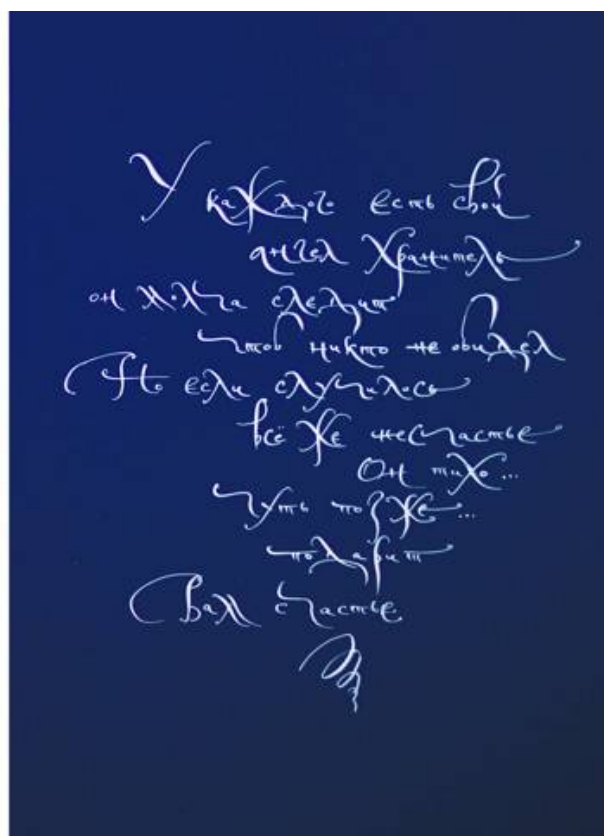 У каждого есть свой
ангел хранитель
он молча следит
чтоб никто не обидел
Но если случилось
всё же несчастье
Он тихо...
чуть позже...
подарит
Вам счастье